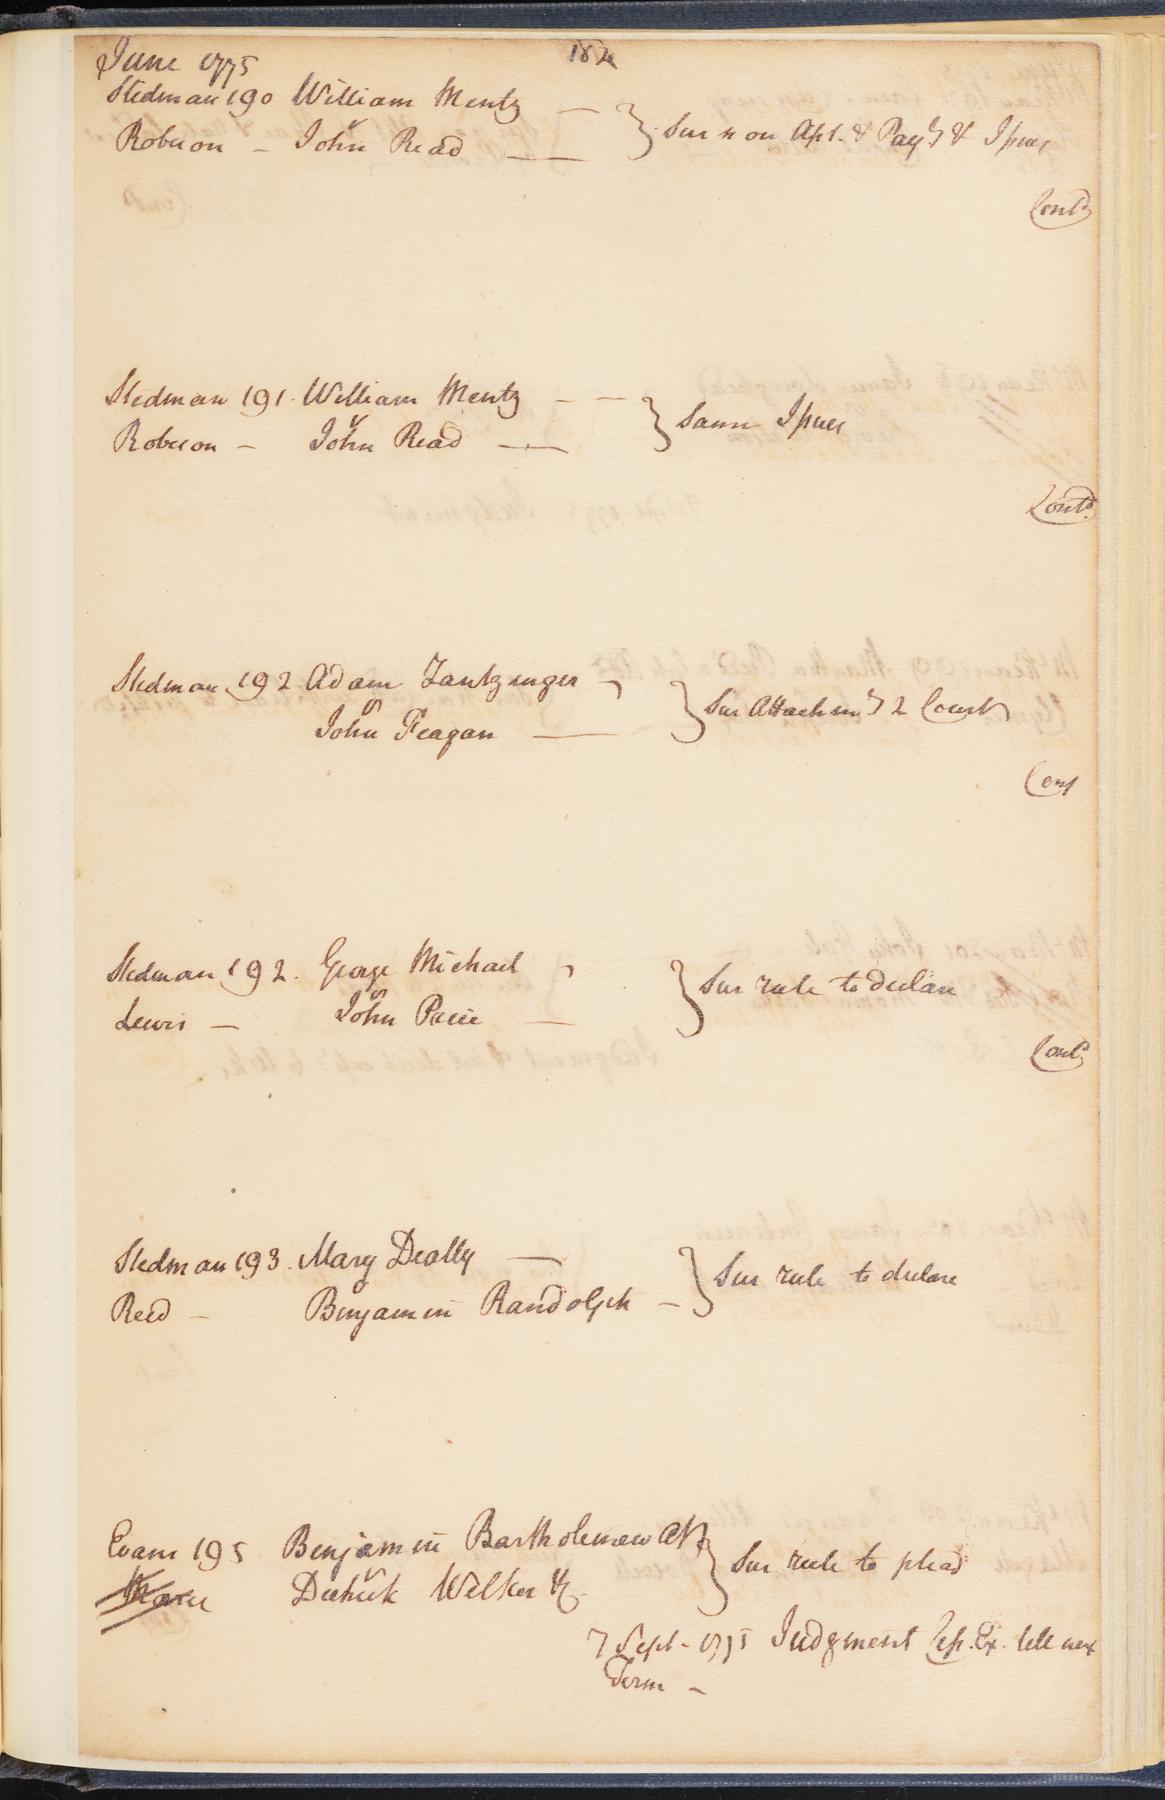 June 1775
182
Stedman 190 William Mentz
v
Robeson - John Read } Sur n on Apt. & Paymt & Issues
Contd
Stedman 191 William Mentz
v
Robeson - John Read } Same Issues
Contd
Stedman 192 Adam Zantzinger
vs
John Feagan } Sur Attachmt 2 Court
Cont
Stedman 192. George Michael
vs
Lewis - John Price } Sur rule to declare
Contd
Stedman 193. Mary Deally
v
Reed - Benjamin Randolph } Sur rule to declare
Evans 195 Benjamin Bartholemew
v
Detrick Welker } Sur rule to plead
7 Sept - 1775 Judgment Cep. Ex. till next
Term -